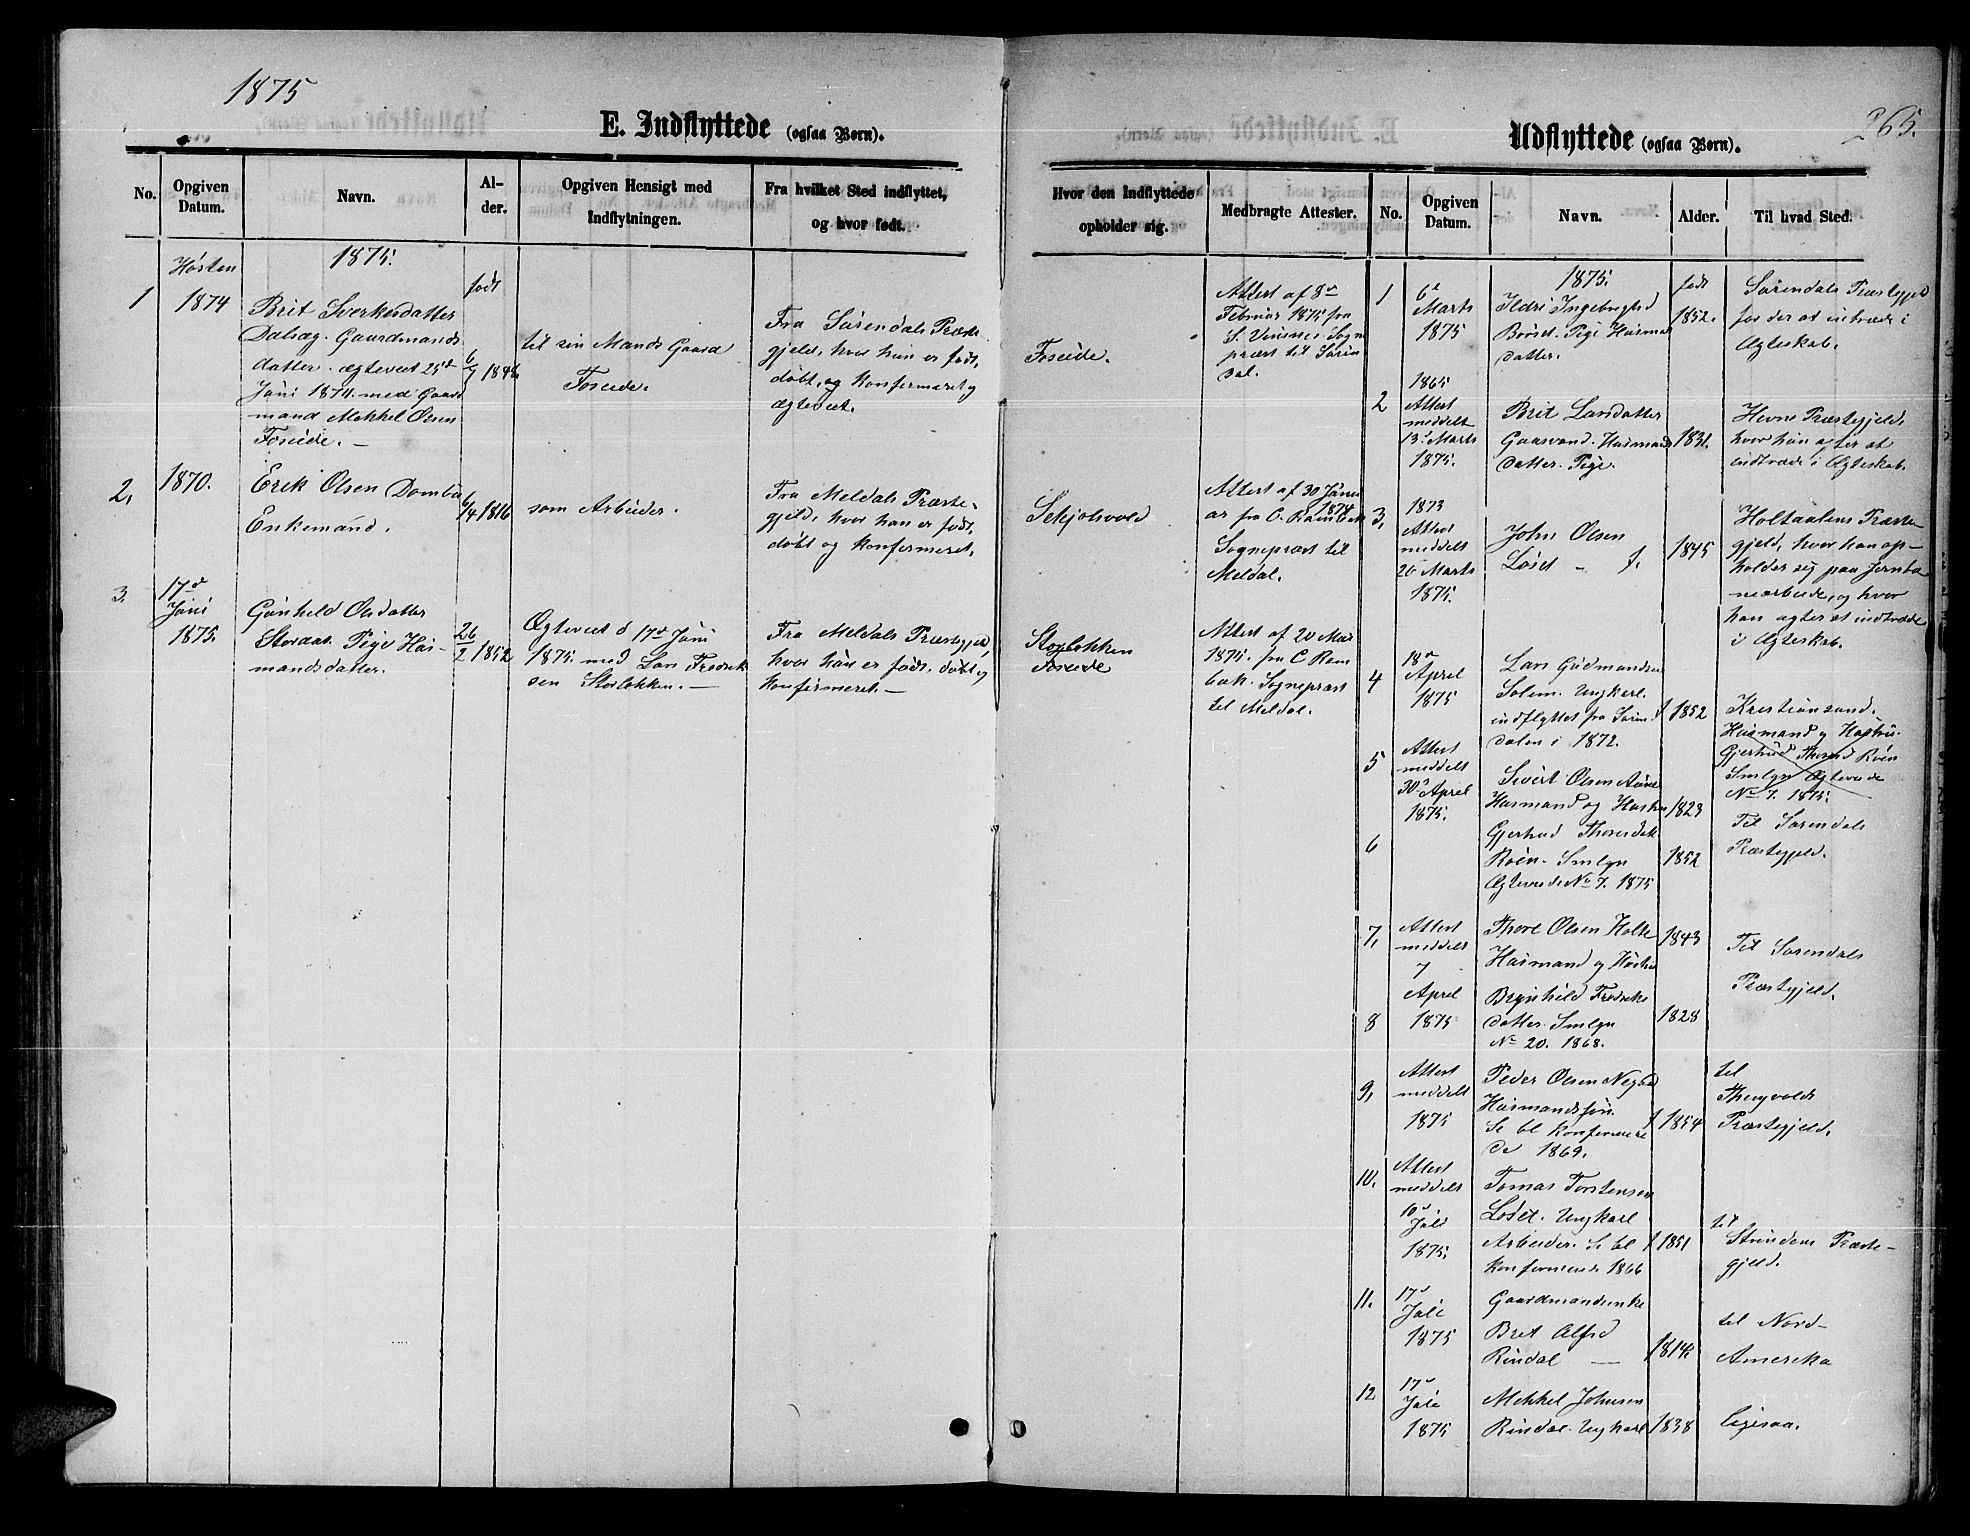 1875
265.
E. Indflyttede (ogsaa Børn).
Udflyttede (ogsaa Børn).
No.
Opgiven
Datum.
Navn.
Al-
der.
Opgiven Hensigt med
Indflytningen.
Fra hvilket Sted indflyttet,
og hvor født.
Hvor den Indflyttede
opholder sig.
Medbragte Attester.
No.
Opgiven
Datum.
Navn.
Alder.
Til hvad Sted.
1875.
1
Høsten
1874
Brit Sverkesdatter
Dalsæg. Gaardmands
datter. ægteviet 25de
Juni 1874 med Gaard
mand Mekkel Olsen
Foseide. —
født
til sin Mands Gaard
Foseide.
Fra Surendals Præste
gjeld, hvor hun er født,
døbt, og konfirmeret og
ægteviet.
Foseide.
Attest af 8de
Februar 1875 fra
Sogne
præst til Suren
dal.
2.
1870.
Erik Olsen
Enkemand.
6/4 1816
som Arbeider.
Fra Meldals Præste-
gjeld, hvor han er født,
døbt og konfirmeret.
Attest af 30 Janu
ar 1874 fra C. Rambek
Sognepræst til
Meldal.
3.
17de
Juni
1875.
Gunhild Olsdatter
Pige Hus-
mandsdatter.
26/2 1852
Ægteviet d 17de Juni
1875 med Lars Fredrik
sen Storløkken. —
Fra Meldals Præstegjeld,
hvor hun er født, døbt og
konfirmeret. —
Storløkken
Foseide
Attest af 20 Mar
1875. fra C Ram
bek. Sognepræst
til Meldal.
1875.
1
6te
Marts
1875
Ildri Ingebrigtsd
Børset. Pige Husmands
datter.
født
1852.
Surendals Præstegjeld
for der at indtræde i
Ægteskab.
2
1865
Attest
meddelt
13de Marts
1875.
Brit Larsdatter
Gaasvand. Husmands
datter. Pige.
1831.
Hevne Præstegjeld,
hvor hun agter at
indtræde i Ægteskab.
3.
1873
Attest
meddelt
26 Marts
1875.
John Olsen
Løset
1845
Holtaalens Præste
gjeld, hvor han op-
holder sig paa Jernba
nearbeide, og hvor
han agter at indtræde
i Ægteskab.
4
18de
April
1875
Lars Gudmundsen
Solem. Ungkarl.
indflyttet fra Suren
dalen i 1872.
1852
Kristiansund.
Husmand og Hustru
Gjertrud Thoresd Røen
Smlgn Ægteviede
No 7. 1875.
5
Attest
meddelt
30de April
1875.
Sivert Olsen Aune
Husmand og Hustru
1823
Til Surendals
Præstegjeld.
6
Gjertrud Thoresdat
Røen. Smlgn
Ægteviede No 7. 1875
1852
7.
Attest
meddelt
7
April
1875
Thore Olsen Holte
Husmand og Hustru
1843
Til Surendals
Præstegjeld.
8
Brynhild Fredriks
datter. Smlgn
No 20. 1868.
1828
9.
Attest
meddelt
1875
Peder Olsen
Husmandssøn.
Se bl Konfirmere
de 1869.
1854
til
Thingvolds
Præstegjeld.
10.
Attest
meddelt
10de
Juli
1875.
Tomas Torstensen
Løset. Ungkarl
Arbeider. Se bl
Konfirmerede 1866
1851
til
Strindens Præste-
gjeld.
11.
17de
Juli
1875
Gaardmandsenke
Brit Alfsd
Rindal —
1814
til Nord-
Amerika
12
17de
Juli
1875
Mekkel Johnsen
Rindal. Ungkarl
1838
ligesaa.